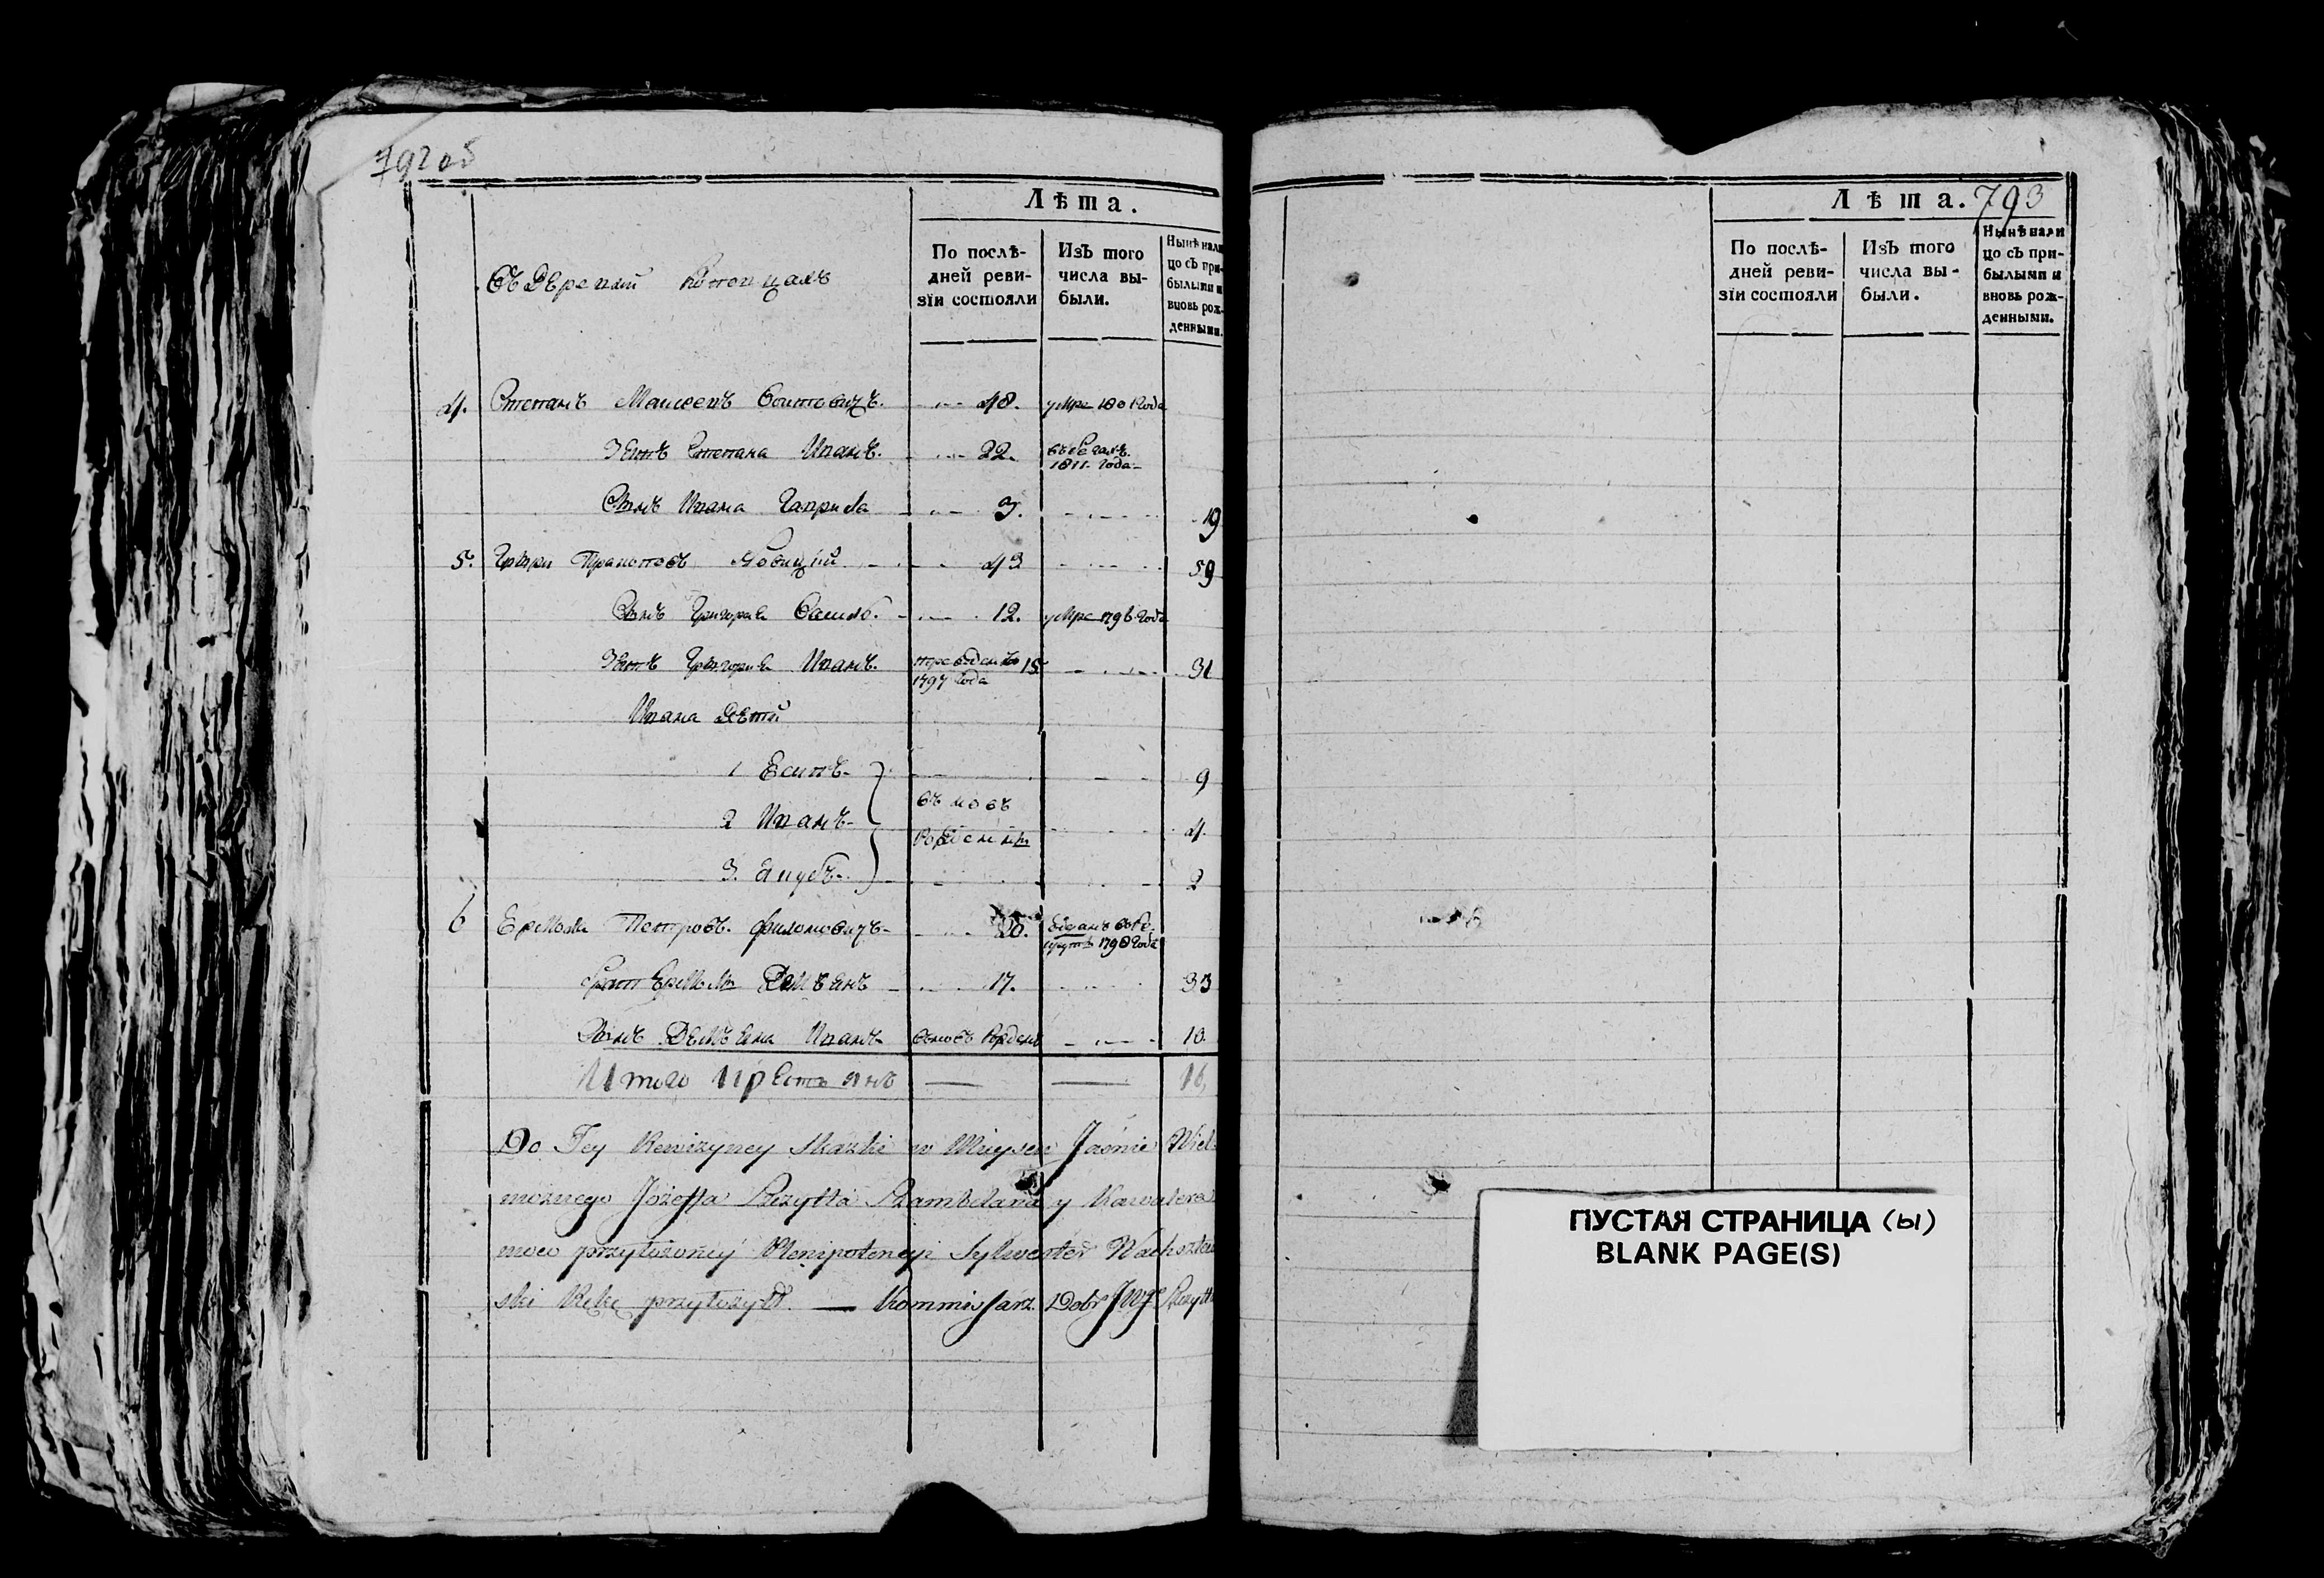 792 об
Лѣта.
По послѣ-
дней реви-
зїи состояли
Изъ того
числа вы-
были.
Нынѣ нали
цо съ при-
былыми и
вновь рож-
денными.
4. Степанъ 48. умре 1801 Года
Зять Степана Иванъ. 22. 1811. Года
Сынъ Ивана Гаврила 3. 19
5. 43 59
Сынъ Григорія 12. умре 1796 Года
Зять Григорія Иванъ. 15 31
1797 Года
Ивана дети
1 Есипъ 9
въ новъ
2 Иванъ 4.
рождени
3. Якубъ 2
6 Ермола Петровъ. 20. 1798 Года
братъ Ермолы Демьянъ 17. 33
Сынъ Демьяна Иванъ въновь рожденъ 10
Итого крестьянъ — — 16,
Do Tey Rewizyney Skazki w Mieyscu Jaśnie Wiel
możnego Józeffa Szczytta Szambelana y Kawalera
moco przyłożoney Plenipotencyi Sylwester
ski Rękę przyłożył. — Kommissarz Dobr JWgo Szczytt
Лѣта. 793
По послѣ-
дней реви-
зїи состояли
Изъ того
числа вы-
были.
Нынѣ нали
цо съ при-
былыми и
вновь рож-
денными.
ПУСТАЯ СТРАНИЦА (ы)
BLANK PAGE(S)